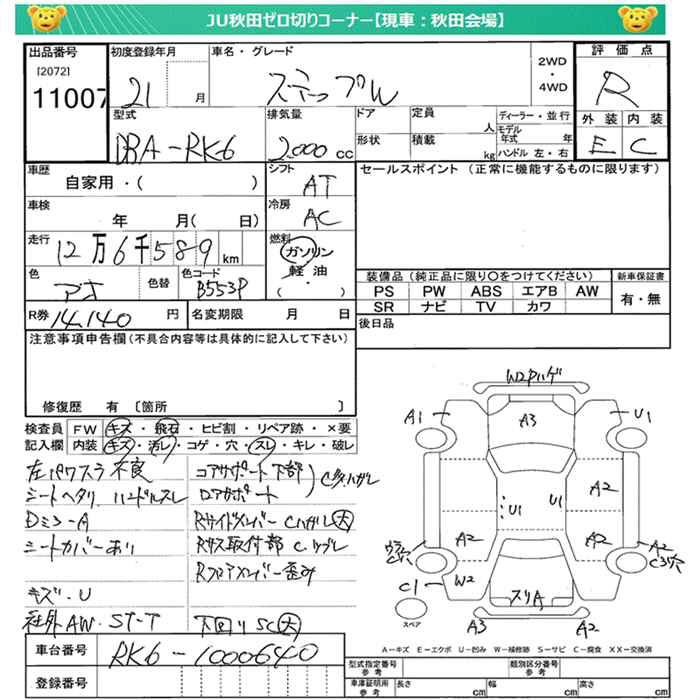 JU秋田ゼロ切りコーナー【現車：秋田会場】
出品番号
[2072]
11007
初度登録年月
21 月
車名・グレード
ステップW
2WD
・
4WD
評価点
R
外装 内装
E C
型式
DBA-RK6
排気量
2,000 cc
ドア
形状
定員
人
積載
kg
ディーラー・並行
モデル年式 年
ハンドル 左・右
車歴
自家用・( )
シフト
AT
セールスポイント (正常に機能するものに限ります)
車検
年 月( 日)
冷房
AC
走行
12万6千589km
燃料
ガソリン
軽油
( )
色
アオ
色替
色コード
B553P
装備品 (純正品に限り○をつけてください)
新車保証書
PS PW ABS エアB AW
SR ナビ TV カワ
有・無
R券 14,140 円
名変期限 月 日
後日品
注意事項申告欄(不具合内容等は具体的に記入して下さい)
修復歴 有 〔箇所 〕
検査員記入欄
FW キズ・飛石・ヒビ割・リペア跡・×要
内装 キズ・汚レ・コゲ・穴・スレ・キレ・破レ
左パワスラ不良
シートヘタリ ハンドルスレ
Dミラ-A
シートカバーあり
キズ・U
社外AW. ST-T
コアサポート下部
ロアサポート
Rサイドメンバー Cハガレ大
Rサス取付部 C.
Rフロアメンバー歪み
下回りSC大
W2Pハゲ
A1
A3
U1
U1
U1
A2
A2
A2
A2
W2
C1
スリA
A3
A2
スペア
A-キズ E-エクボ U-凹み W-補修跡 S-サビ C-腐食 XX-交換済
車台番号
RK6-1000640
登録番号
型式指定番号
参考
類別区分番号
参考
車庫証明用
参考
長さ cm
幅 cm
高さ cm